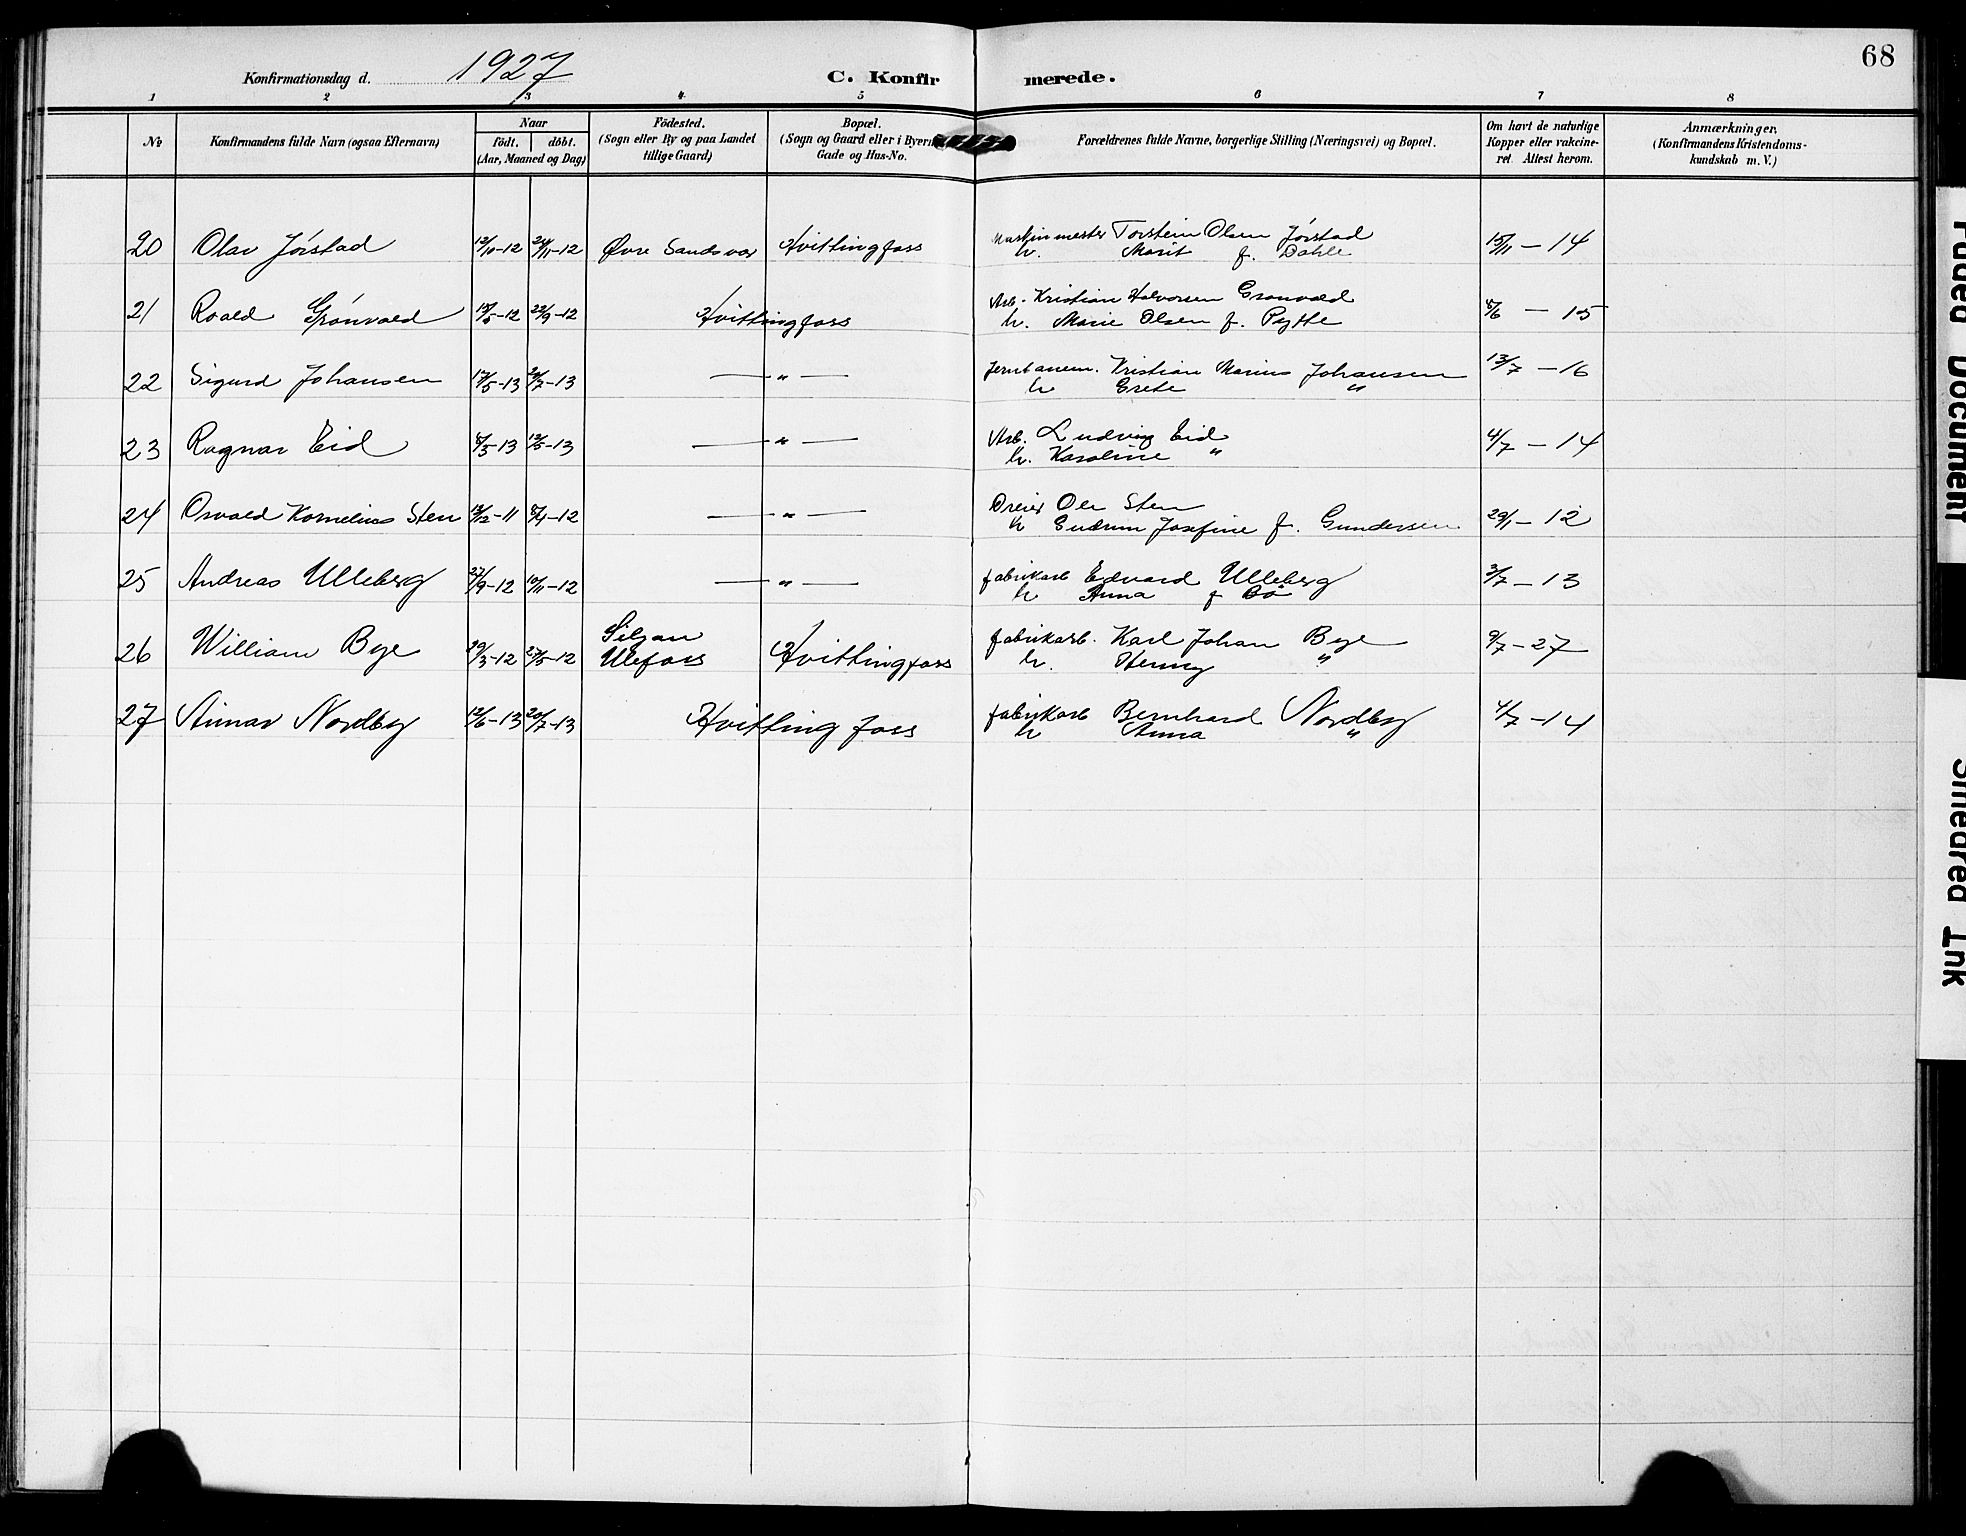 68
Konfirmationsdag d. 1927 C. Konfirmerede.
1 2 3 4 5 6 7 8
No Konfirmandens fulde Navn (ogsaa Efternavn) Naar födt. döbt. (Aar, Maaned og Dag) Födested. (Sogn eller By og paa Landet tillige Gaard) Bopæl. (Sogn og Gaard eller i Byern Gade og Hus-No. Forældrenes fulde Navne, borgerlige Stilling (Næringsvei) og Bopæl. Om havt de naturlige Kopper eller vakcineret. Attest herom. Anmærkninger. (Konfirmandens Kristendomskundskab m. V.)
20 Olav Jörstad 12/10-12 24/11-12 Øvre Sandsvær Hvittingfoss Maskinmester Torstein Olsen Jörstad 15/11 - 14
h. Marit f. Dahle
21 Roald Grönvold 19/5-12 22/9-12 Hvittingfoss Arb. Kristian Halvorsen Grønvold 8/6 - 15
h. Marie Olsen f. Pytte
22 Sigurd Johansen 17/5-13 20/7-13 — " — Jernbanem. Kristian Marius Johansen 13/7 - 16
h Grete "
23 Ragnar Eid 8/3-13 12/5-13 — " — Arb. Ludvig Eid 4/7 - 14
h. Karoline "
24 Osvald Kornelius Sten 12/12-11 8/4-12 — " — Dreier Ole Sten 29/1 - 12
h Gudrun Josefine f. Gundersen
25 Andreas Ulleberg 27/9-12 10/11-12 — " — fabrikarb Edvard Ulleberg 3/7 - 13
h Anna f Bö
26 William Bye 29/3-12 27/5-12 Siljan Ulefoss Hvittingfoss fabrikarb. Karl Johan Bye 9/7 - 27
h. Henny "
27 Aimar Nordby 12/6-13 20/7-13 Hvittingfoss fabrikarb Bernhard Nordby 4/7 - 14
h Anna "
Faded Document
Smeared Ink